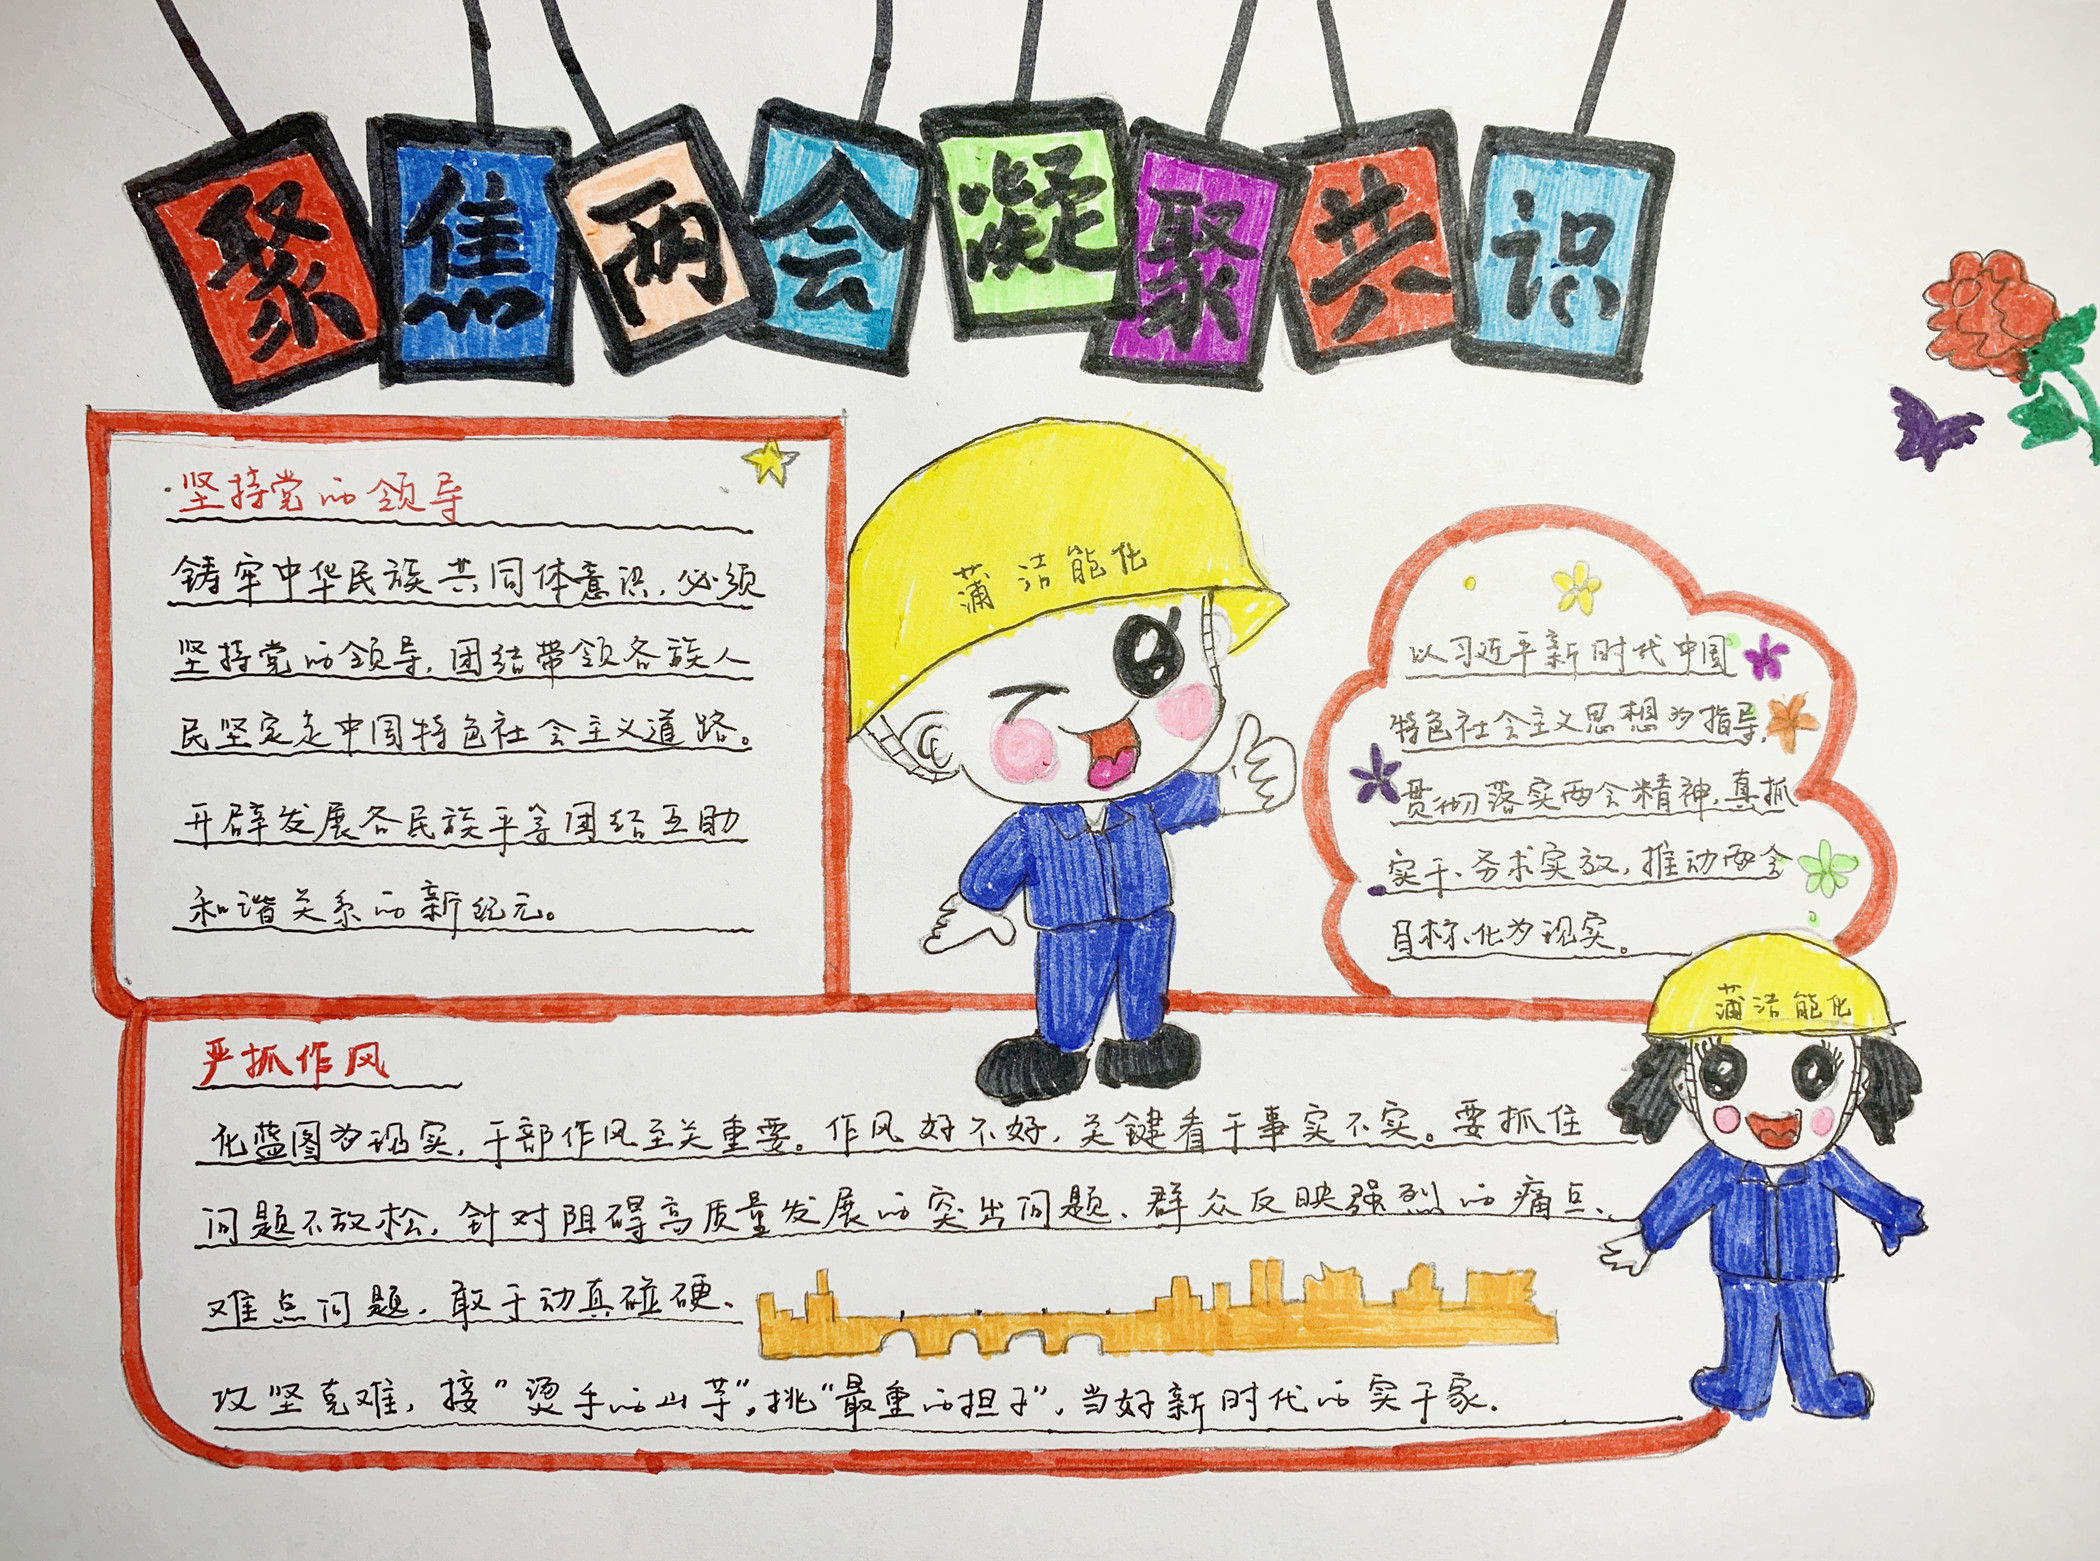 聚焦两会凝聚共识
坚持党的领导
铸牢中华民族共同体意识，必须
坚持党的领导，团结带领各族人
民坚定走中国特色社会主义道路。
开辟发展各民族平等团结互助
和谐关系的新纪元。
蒲洁能化
以习近平新时代中国
特色社会主义思想为指导，
贯彻落实两会精神，真抓
实干、务求实效，推动两会
目标、化为现实。
蒲洁能化
严抓作风
化蓝图为现实，干部作风至关重要。作风好不好，关键看干事实不实。要抓住
问题不放松，针对阻碍高质量发展的突出问题、群众反映强烈的痛点、
难点问题，敢于动真碰硬、
攻坚克难，接“烫手的山芋”，挑“最重的担子”，当好新时代的实干家.